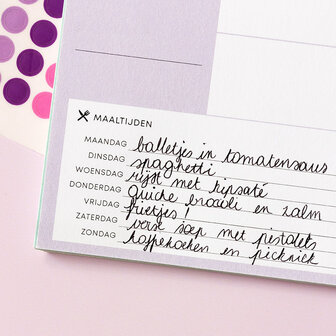 MAALTIJDEN
MAANDAG balletjes in tomatensaus
DINSDAG spaghetti
WOENSDAG rijst met kipsaté
DONDERDAG quiche broccoli en zalm
VRIJDAG frietjes!
ZATERDAG verse soep met pistolets
ZONDAG koffiekoeken en picknick